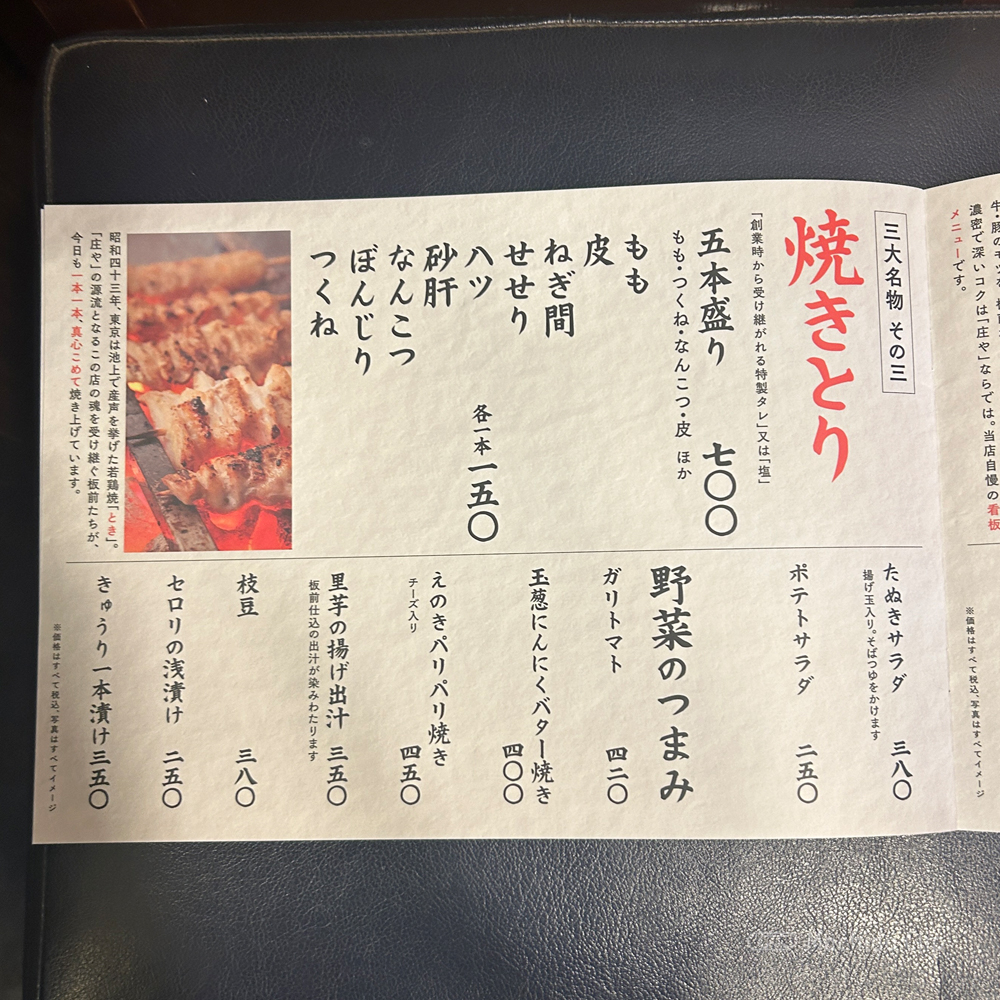 牛・豚のモツを
濃密で深いコクは「庄や」ならでは。当店自慢の看板
メニューです。
※価格はすべて税込、写真はすべてイメージ
三大名物 その三
焼きとり
「創業時から受け継がれる特製タレ」又は「塩」
五本盛り 七〇〇
もも・つくね・なんこつ・皮 ほか
もも
皮
ねぎ間
せせり
ハツ
砂肝
なんこつ
ぼんじり
つくね
各一本 一五〇
昭和四十三年、東京は池上で産声を挙げた若鶏焼「とき」。
「庄や」の源流となるこの店の魂を受け継ぐ板前たちが、
今日も一本一本、真心こめて焼き上げています。
たぬきサラダ 三八〇
揚げ玉入り。そばつゆをかけます
ポテトサラダ 二五〇
野菜のつまみ
ガリトマト 四二〇
玉葱にんにくバター焼き 四〇〇
えのきパリパリ焼き 四五〇
チーズ入り
里芋の揚げ出汁 三五〇
板前仕込の出汁が染みわたります
枝豆 三八〇
セロリの浅漬け 二五〇
きゅうり一本漬け 三五〇
※価格はすべて税込、写真はすべてイメージ